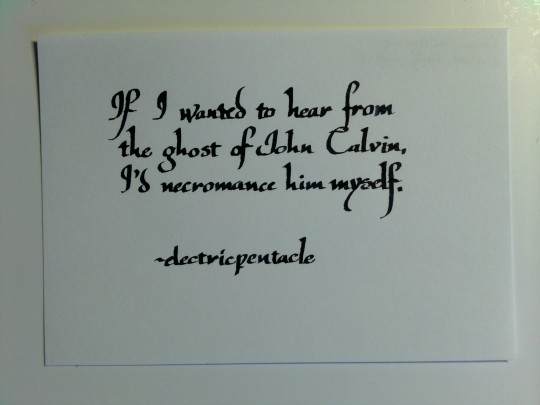 If I wanted to hear from
the ghost of John Calvin,
I'd necromance him myself.
~electricpentacle